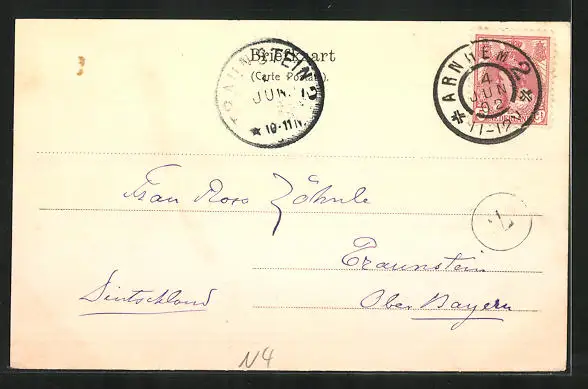 Briefkaart
(Carte Postale).
TRAUNSTEIN 2
JUN.
★ 10-11 N.
ARNHEM 2
4
JUN
02
11-12
Frau Rosa Zähnle
Traunstein
Deutschland
Ober Bayern
N4